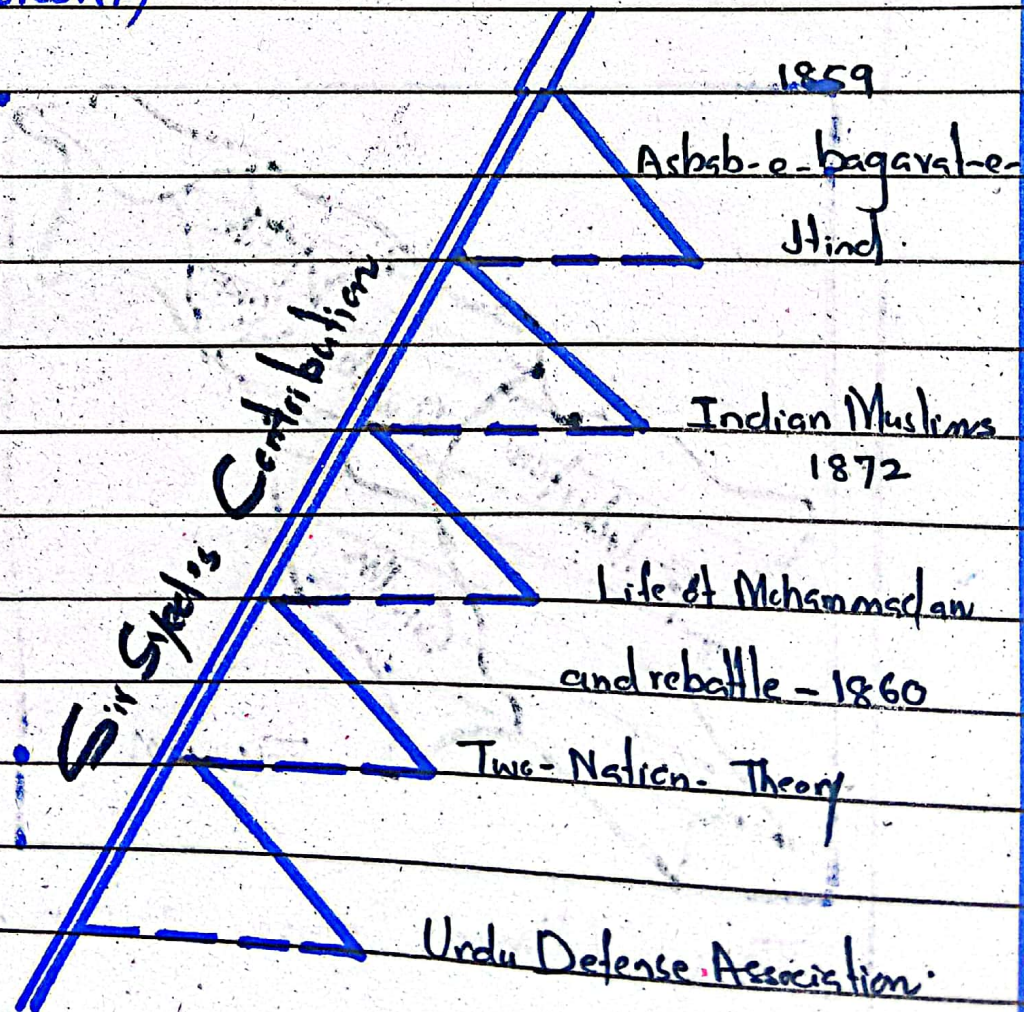 Sir Syed's Contribution
1859
Asbab-e-bagaval-e-
Hind.
Indian Muslims
1872
Life of Mohammadan
and rebattle - 1860
Two-Nation- Theory
Urdu Defense Association.